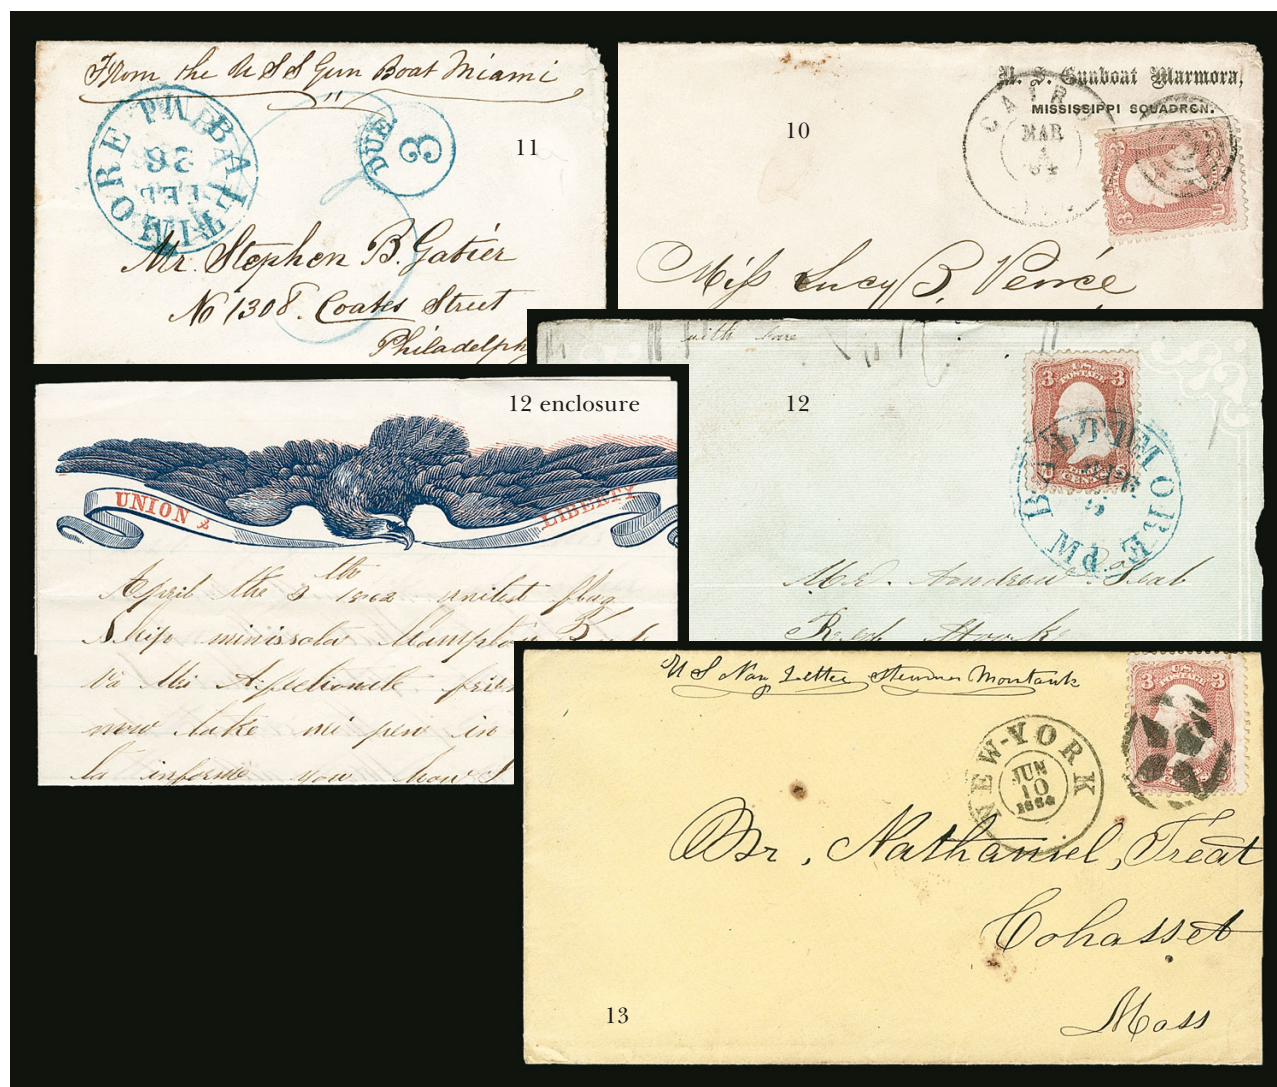 From the U S S Gun Boat Miami
"
BALTIMORE PM
FEB
26
DUE 3
3
11
Mr. Stephen B. Gabier
No 1308. Coates Street
Philadelph
U. S. Gunboat Marmora,
MISSISSIPPI SQUADRON.
10
CAIRO
MAR
64
3 3
Miss Lucy B. Vence
12 enclosure
UNION & LIBERTY
April the 3 th 1862 unitest flag
Ship minissota Hampton
mi Affectionate
now take mi pen in
la informe you how I
with
12
U.S. POSTAGE
3 3
CENTS
BALTIMORE PM
Andrew
13
U S Nav Letter Steamer Montauk
NEW-YORK
JUN
10
1864
U.S. POSTAGE
3 3
Mr, Nathaniel, Treat
Cohasset
Mass